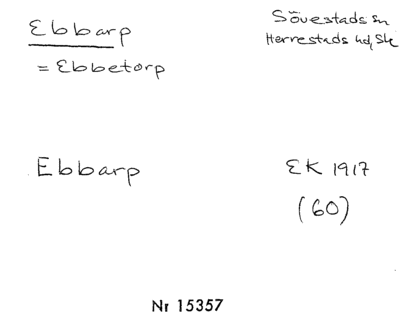 Ebbarp
= Ebbetorp
Sövestads sn
Herrestads hd, Sk
Ebbarp
EK 1917
(60)
Nr 15357